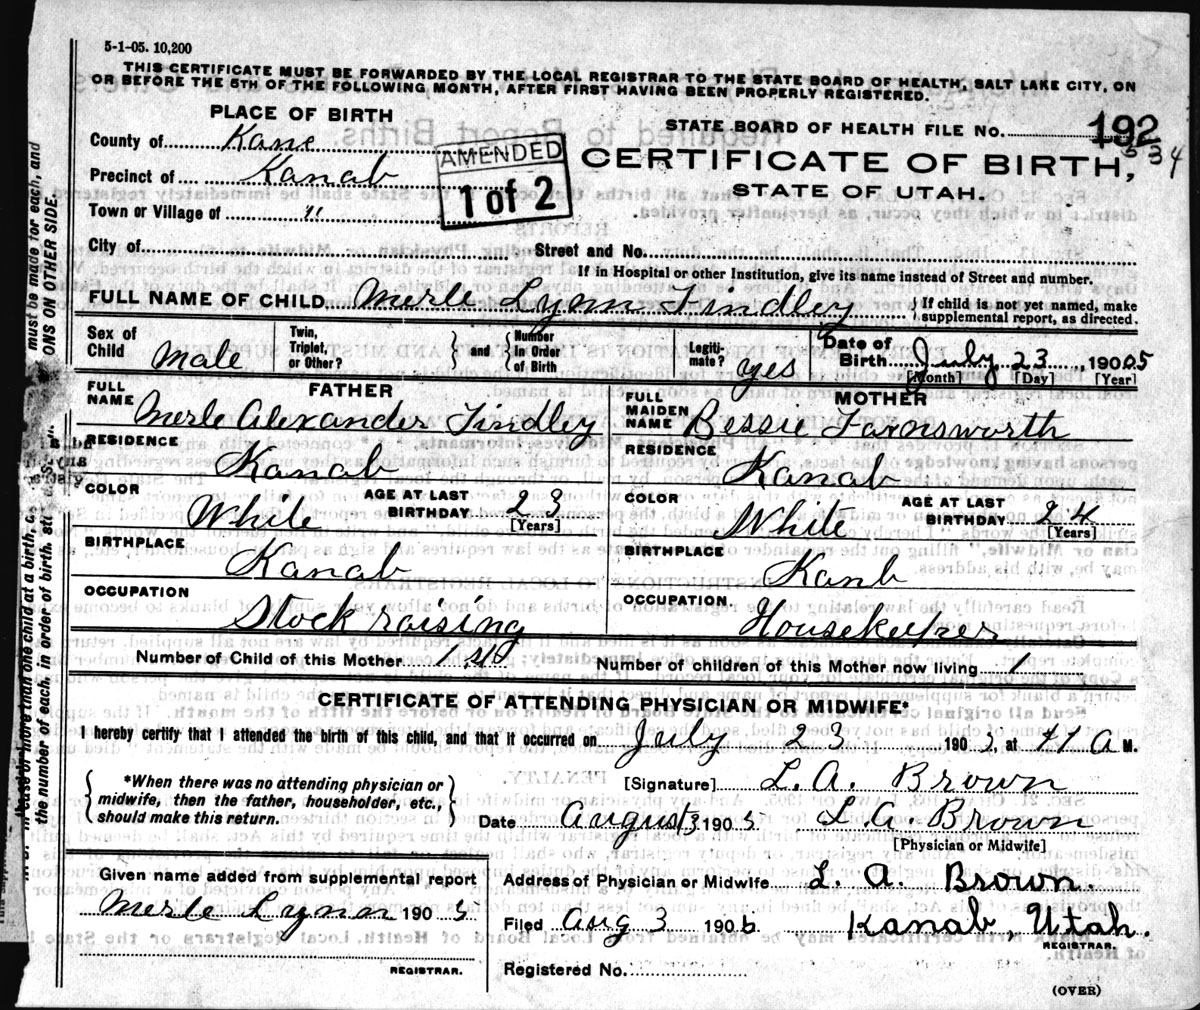 5-1-05. 10,200
THIS CERTIFICATE MUST BE FORWARDED BY THE LOCAL REGISTRAR TO THE STATE BOARD OF HEALTH, SALT LAKE CITY, ON
OR BEFORE THE 5TH OF THE FOLLOWING MONTH, AFTER FIRST HAVING BEEN PROPERLY REGISTERED.
PLACE OF BIRTH
County of Kane
Precinct of Kanab
Town or Village of "
City of
AMENDED
1 of 2
STATE BOARD OF HEALTH FILE No. 192
534
CERTIFICATE OF BIRTH,
STATE OF UTAH.
Street and No.
If in Hospital or other Institution, give its name instead of Street and number.
FULL NAME OF CHILD Merle Lynn Findley { If child is not yet named, make supplemental report, as directed.
Sex of Child Male Twin, Triplet, or Other? } and { Number in Order of Birth Legiti-mate? yes Date of Birth July 23, 190 05
[Month] [Day] [Year]
FATHER
FULL NAME Merle Alexander Findley
RESIDENCE Kanab
COLOR White AGE AT LAST BIRTHDAY 23
[Years]
BIRTHPLACE Kanab
OCCUPATION Stock raising
MOTHER
FULL MAIDEN NAME Bessie Farnsworth
RESIDENCE Kanab
COLOR White AGE AT LAST BIRTHDAY 24
[Years]
BIRTHPLACE Kanb
OCCUPATION Housekeeper
Number of Child of this Mother 1st Number of children of this Mother now living 1
CERTIFICATE OF ATTENDING PHYSICIAN OR MIDWIFE*
I hereby certify that I attended the birth of this child, and that it occurred on July 23 190 , at 11 A M.
*When there was no attending physician or
midwife, then the father, householder, etc.,
should make this return.
[Signature] L. A. Brown
Date August 3 190 5. L. A. Brown
[Physician or Midwife]
Given name added from supplemental report
Merle Lynn 190 5
REGISTRAR.
Address of Physician or Midwife L. A. Brown.
Filed Aug 3 190 Kanab, Utah.
REGISTRAR.
Registered No.
(OVER)
must be made for each, and
ONS ON OTHER SIDE.
more than one child at a birth,
the number of each, in order of birth